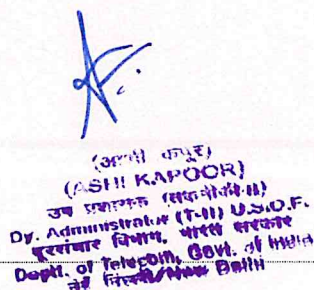 (ASHI KAPOOR)
उप प्रशासक (तकनीकी-II)
Dy. Administrator (T-II) U.S.O.F.
दूरसंचार विभाग, भारत सरकार
Deptt. of Telecom, Govt. of India
नई दिल्ली/New Delhi